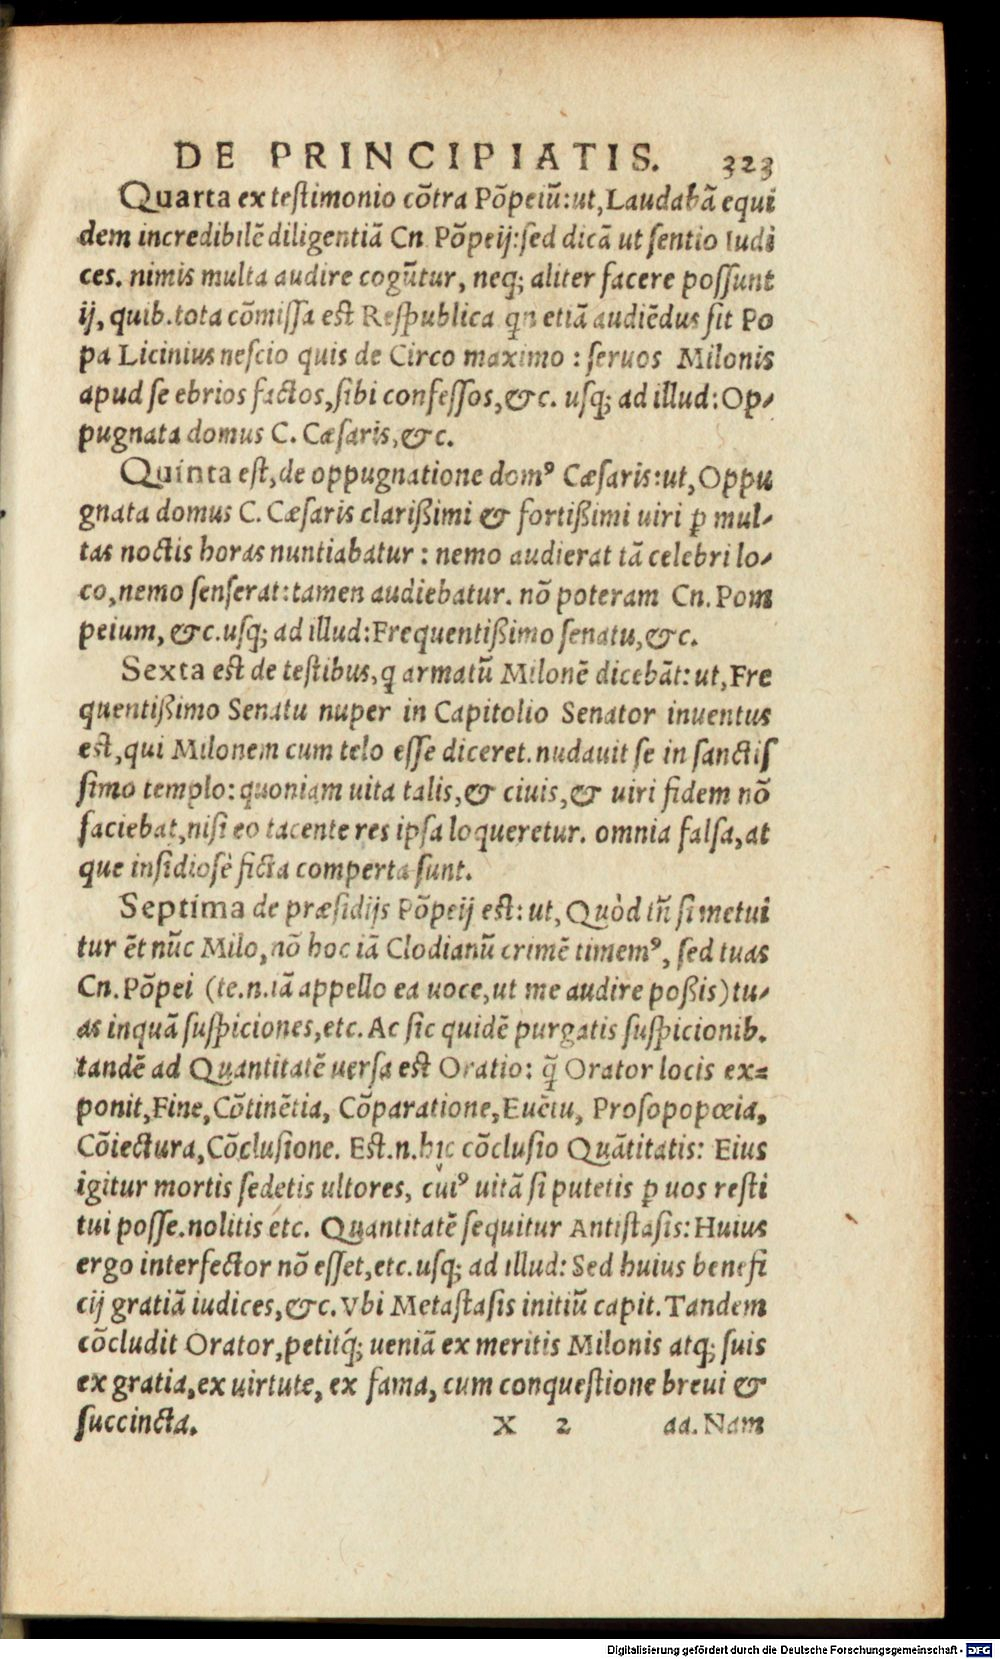 DE PRINCIPIATIS. 323
Quarta ex testimonio cõtra Põpeiũ: ut, Laudabã equi
dem incredibilẽ diligentiã Cn Põpeij: sed dicã ut sentio Iudi
ces. nimis multa audire cogũtur, neq; aliter facere possunt
ij, quib. tota cõmissa est Respublica qn etiã audiẽdus sit Po
pa Licinius nescio quis de Circo maximo : seruos Milonis
apud se ebrios factos, sibi confessos, &c. usq; ad illud: Op-
pugnata domus C. Cæsaris, &c.
Quinta est, de oppugnatione domꝰ Cæsaris: ut, Oppu
gnata domus C. Cæsaris clarißimi & fortißimi uiri ꝑ mul-
tas noctis horas nuntiabatur : nemo audierat tã celebri lo-
co, nemo senserat: tamen audiebatur. nõ poteram Cn. Pom
peium, &c. usq; ad illud: Frequentißimo senatu, &c.
Sexta est de testibus, q armatũ Milonẽ dicebãt: ut, Fre
quentißimo Senatu nuper in Capitolio Senator inuentus
est, qui Milonem cum telo esse diceret. nudauit se in sanctis
simo templo: quoniam uita talis, & ciuis, & uiri fidem nõ
faciebat, nisi eo tacente res ipsa loqueretur. omnia falsa, at
que insidiosè ficta comperta sunt.
Septima de præsidijs Põpeij est: ut, Quòd tñ si metui
tur ẽt nũc Milo, nõ hoc iã Clodianũ crimẽ timemꝰ, sed tuas
Cn. Põpei (te.n.iã appello ea uoce, ut me audire poßis) tu-
as inquã suspiciones, etc. Ac sic quidẽ purgatis suspicionib.
tandẽ ad Quantitatẽ uersa est Oratio: q̃ Orator locis ex=
ponit, Fine, Cõtinẽtia, Cõparatione, Euẽtu, Prosopopœia,
Cõiectura, Cõclusione. Est.n.hic cõclusio Quãtitatis: Eius
igitur mortis sedetis ultores, cuiꝰ uitã si putetis ꝑ uos resti
tui posse. nolitis etc. Quantitatẽ sequitur Antistasis: Huius
ergo interfector nõ esset, etc. usq; ad illud: Sed huius benefi
cij gratiã iudices, &c. Vbi Metastasis initiũ capit. Tandem
cõcludit Orator, petitq́; ueniã ex meritis Milonis atq; suis
ex gratia, ex uirtute, ex fama, cum conquestione breui &
succincta. X 2 aa. Nam
Digitalisierung gefördert durch die Deutsche Forschungsgemeinschaft - DFG